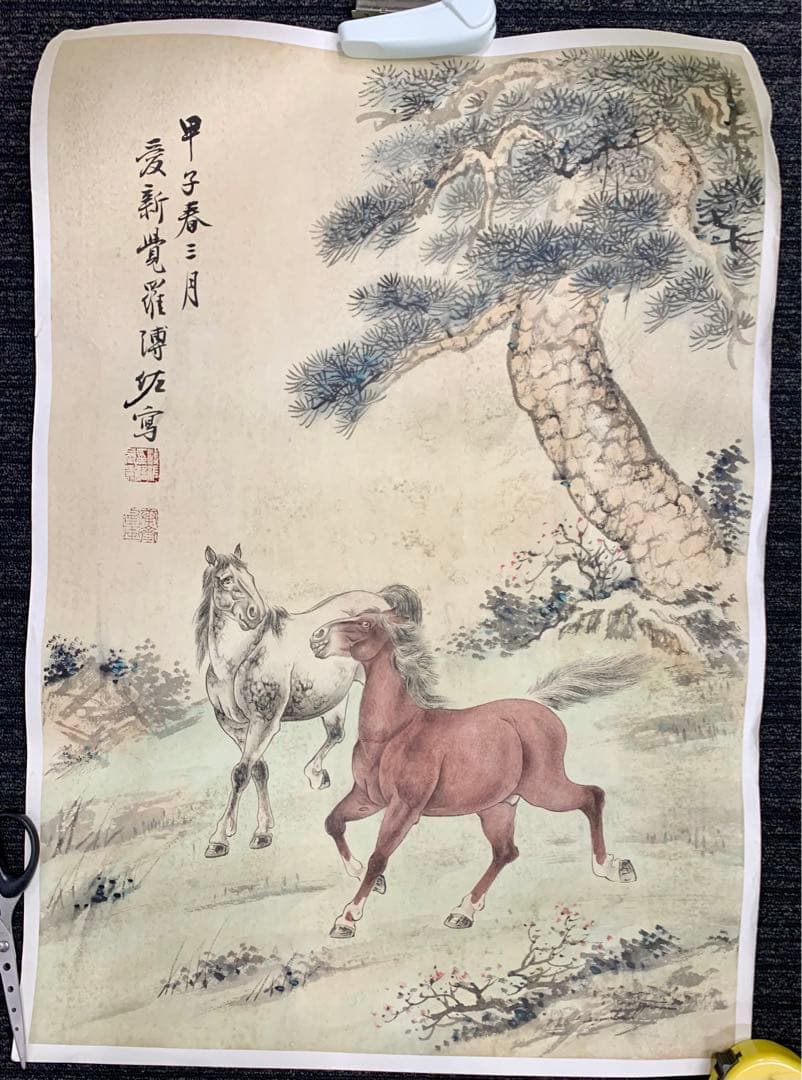 甲子春三月
愛新覺羅溥佐寫